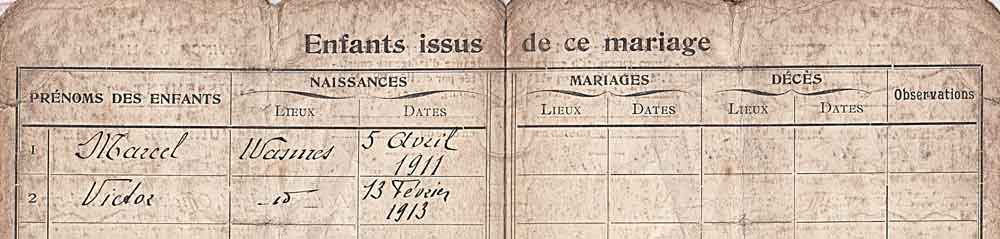 Enfants issus de ce mariage
PRÉNOMS DES ENFANTS NAISSANCES MARIAGES DÉCÈS Observations
LIEUX DATES LIEUX DATES LIEUX DATES
1 Marcel Wasmes 5 Avril
1911
2 Victor id 13 Février
1913